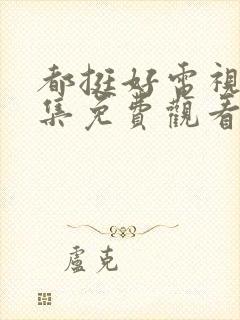 都挺好電視
集免費觀看
盧克